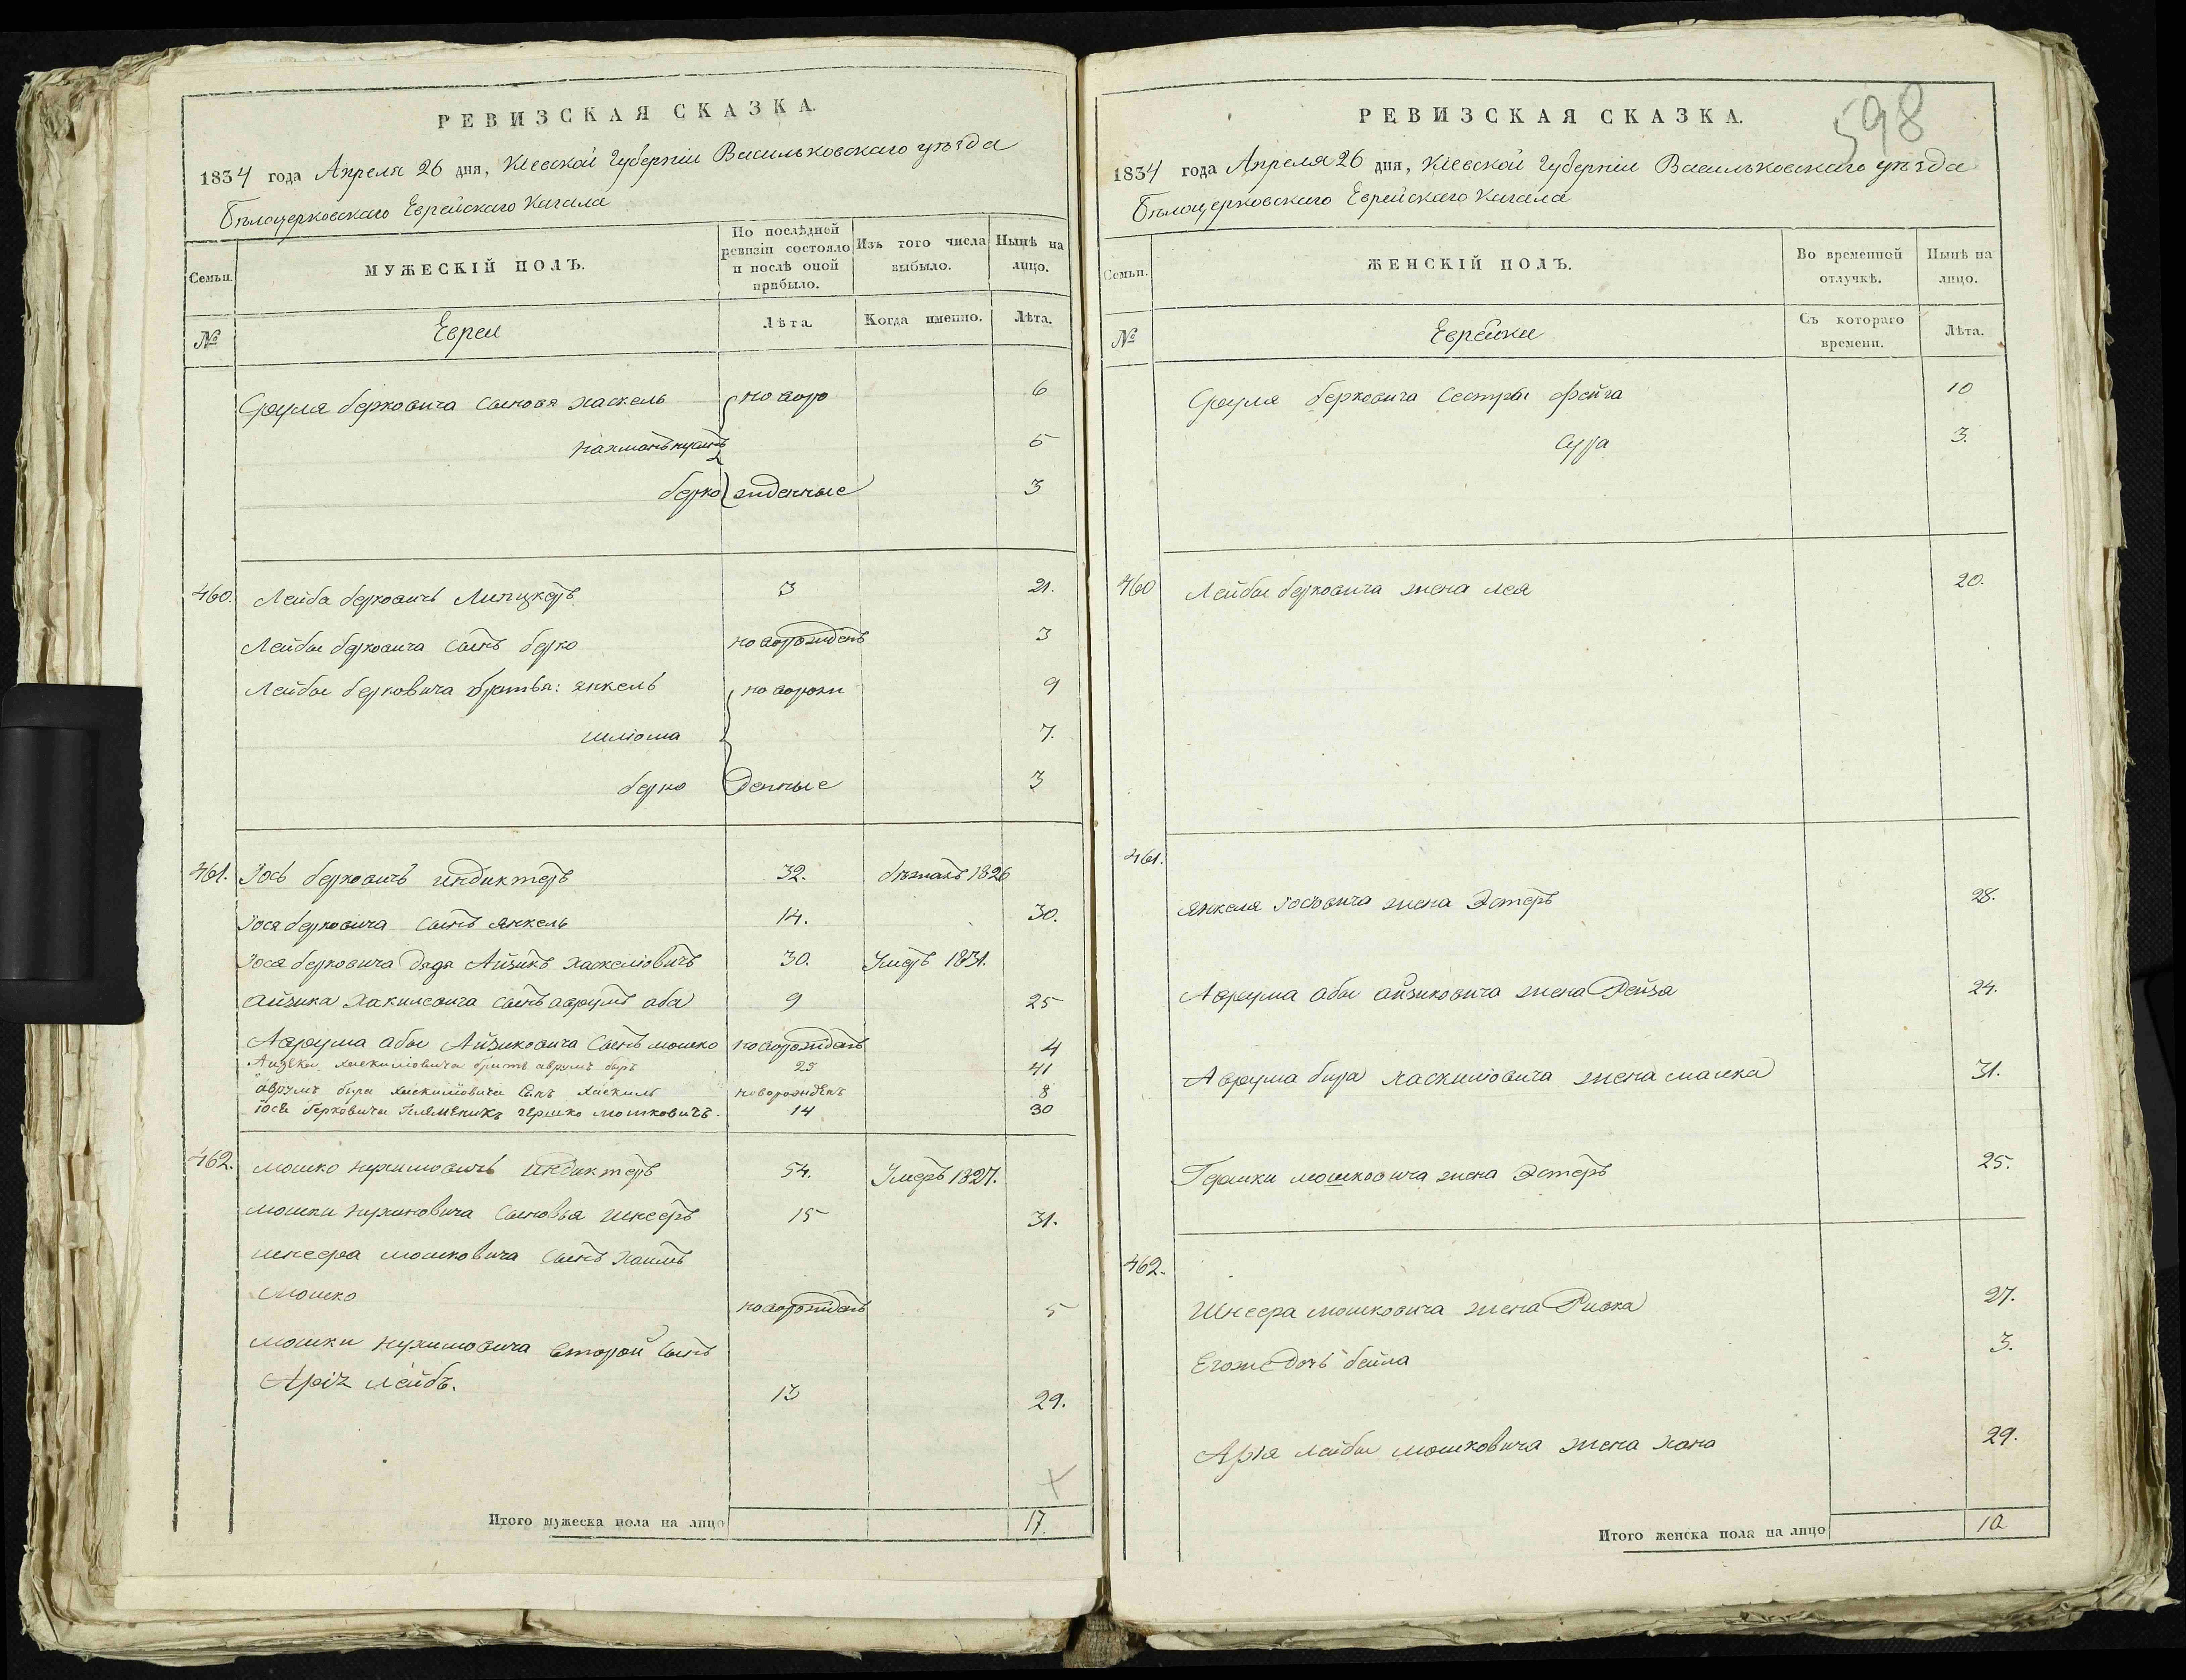 РЕВИЗСКАЯ СКАЗКА.
1834 года Апреля 26 дня, Кіевской Губерніи Васильковскаго уѣзда
Бѣлоцерковскаго Еврейскаго Кагала
Семьи.
МУЖЕСКІЙ ПОЛЪ.
По послѣдней ревизіи состояло и послѣ оной прибыло.
Изъ того числа выбыло.
Нынѣ на лицо.
№
Евреи
Лѣта.
Когда именно.
Лѣта.
Сруля берковича сыновя хаскель новоро 6
нахманъ 5
берко жденные 3
460. Лейба берковичъ Липцкеръ 3 21.
Лейбы берковича сынъ берко новорожденъ 3
Лейбы берковича братья: янкель новорож 9
шліома 7.
берко Денные 3
461. Іось берковичъ индиктеръ 32. бѣжалъ 1826
Іося берковича сынъ янкель 14. 30.
Іося берковича дядя Айзикъ хаскеліовичъ 30. Умеръ 1831.
Айзика хаскилевича сынъ аврумъ аба 9 25
Аврума абы Айзиковича сынъ мошко новорожденъ 4
Айзека хаскиліовича братъ аврумъ бырь 25 41
аврумъ бера хаскиліовича сынъ хаскиль новорожденъ 8
іося берковича племеникъ гершко мошковичъ. 14 30
462. мошко нухимовичъ индиктеръ 54. Умеръ 1827.
мошки нухимовича сыновья шнееръ 15 31.
шнеера мошковича сынъ хаимъ
мошко новорожденъ 5
мошки нухимовича второй сынъ
Аріх лейбъ. 13 29.
Итого мужеска пола на лицо 17.
598
РЕВИЗСКАЯ СКАЗКА.
1834 года Апреля 26 дня, Кіевской Губерніи Васильковскаго уѣзда
Бѣлоцерковскаго Еврейскаго Кагала
Семьи.
ЖЕНСКІЙ ПОЛЪ.
Во временной отлучкѣ.
Нынѣ на лицо.
№
Еврейки
Съ котораго времени.
Лѣта.
Сруля берковича сестры фейга 10
сура 3.
460 Лейбы берковича жена лея 20.
461.
янкеля іосьовича жена Эстеръ 28.
Аврума абы айзиковича жена Рейза 24.
Аврума бира хаскиліовича жена малка 31.
Гершки мошковича жена Эстеръ 25.
462.
Шнеера мошковича жена Ривка 27.
Егоже дочь бейла 3.
Арія лейбы мошковича жена хана 29.
Итого женска пола на лицо 10